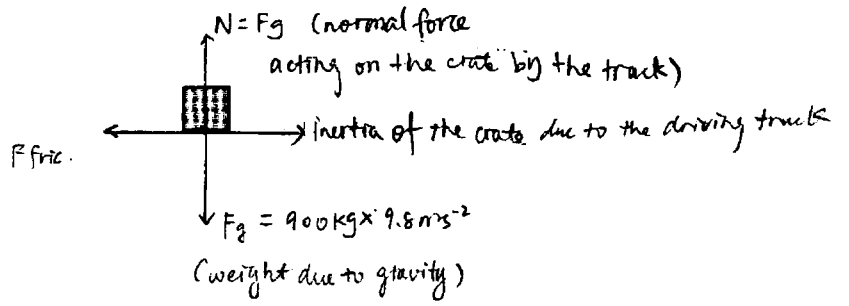 N = Fg (normal force
acting on the crate by the track)
inertia of the crate due to the driving truck
F fric.
Fg = 900kg x 9.8ms⁻²
(weight due to gravity)